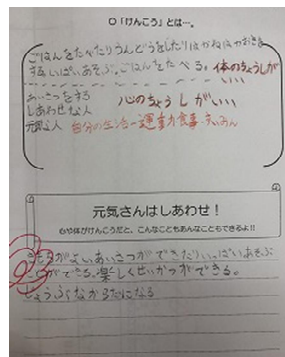 ○「けんこう」とは…。
ごはんをたべたりうんどうをしたりはやねはやおきを
する、いっぱいあそぶ。ごはんをたべる。体のちょうしが
いい
あいさつをする
しあわせな人 心のちょうしがいい
元気な人 自分の生活→運動 食事 すいみん
元気さんはしあわせ！
心や体がけんこうだと、こんなこともあんなこともできるよ!!
きもちがよいあいさつができたりいっぱいあそぶ
ことができる。楽しくせいかつができる。
じょうぶなからだになる